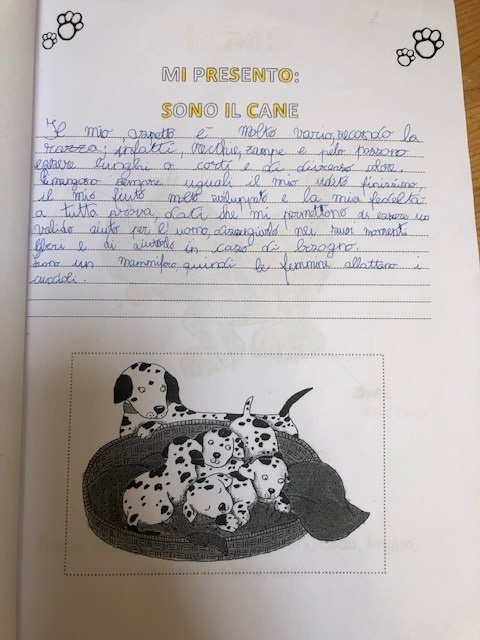 MI PRESENTO:
SONO IL CANE
Il mio, aspetto è molto vario, secondo la
razza; infatti, orecchie, zampe e pelo possono
essere lunghi o corti e di diverso colore.
Rimangono sempre uguali il mio udito finissimo,
il mio fiuto molto sviluppato e la mia fedeltà
a tutta prova, doti che mi permettono di essere un
valido aiuto per l'uomo, nei suoi momenti
liberi e di aiutarlo in caso di bisogno.
Sono un mammifero, quindi le femmine allattano i
cuccioli.